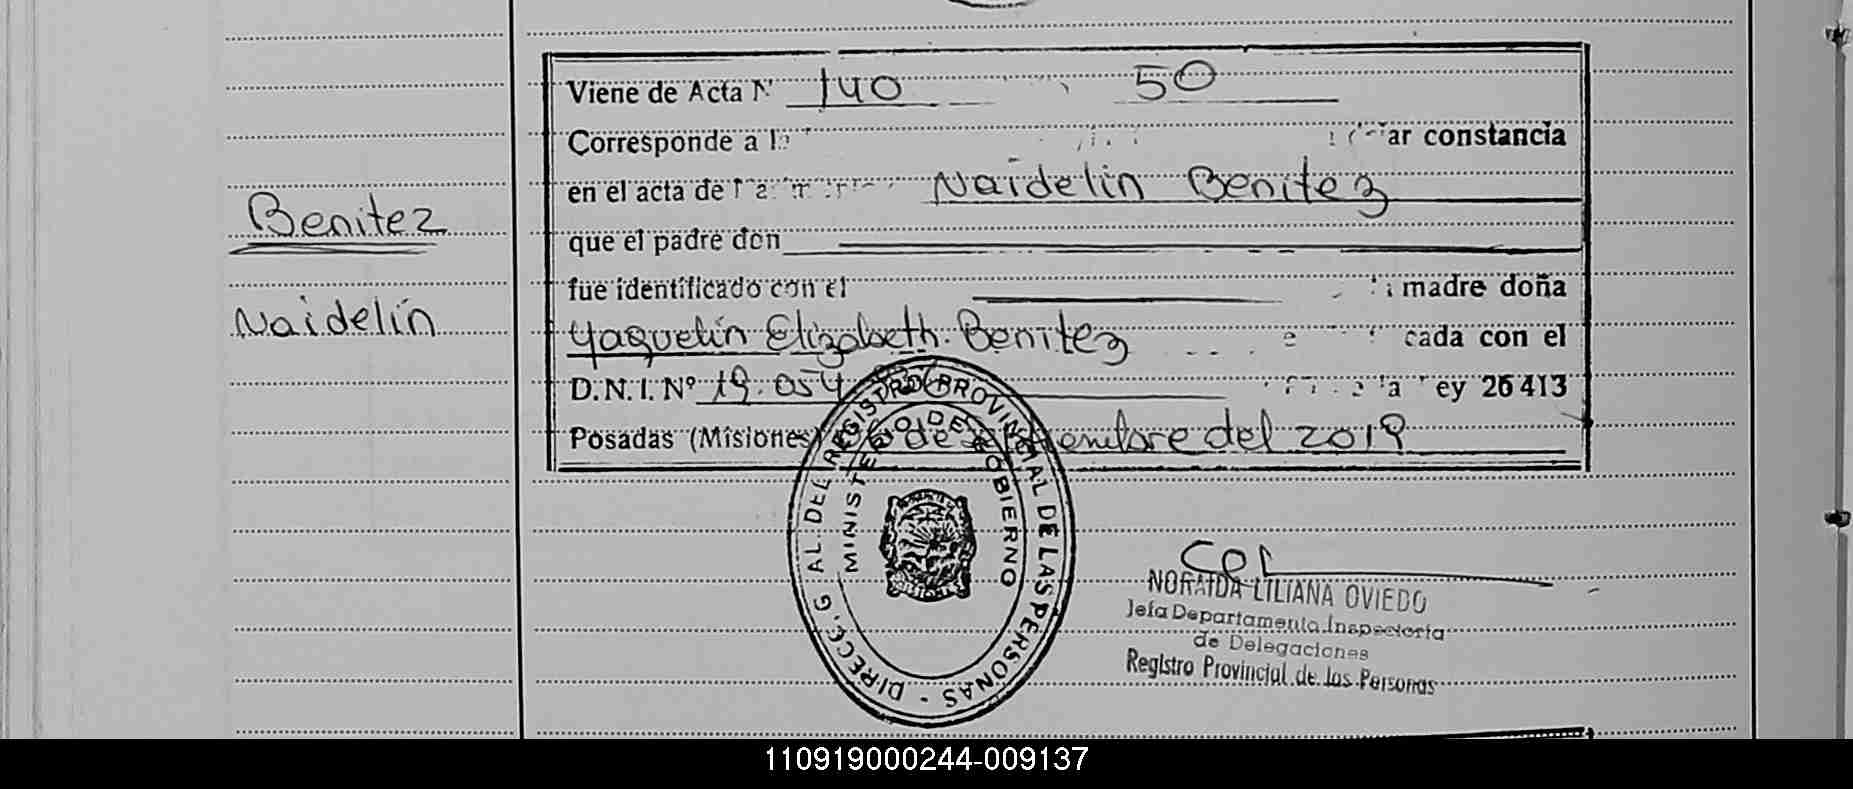 Viene de Acta Nº 140 50
Corresponde a la ar constancia
en el acta de Naidelin Benitez
que el padre don
fue identificado con el madre doña
Yaquelin Elizabeth Benitez cada con el
D.N.I. Nº 19.054 ley 26413
Posadas (Misiones) de del 2019
Benitez
Naidelin
DIRECC. G AL. DEL REGISTRO PROVINCIAL DE LAS PERSONAS -
MINISTERIO DE GOBIERNO
NORAIDA LILIANA OVIEDO
Jefa Departamento Inspectoria
de Delegaciones
Registro Provincial de las Personas
110919000244-009137